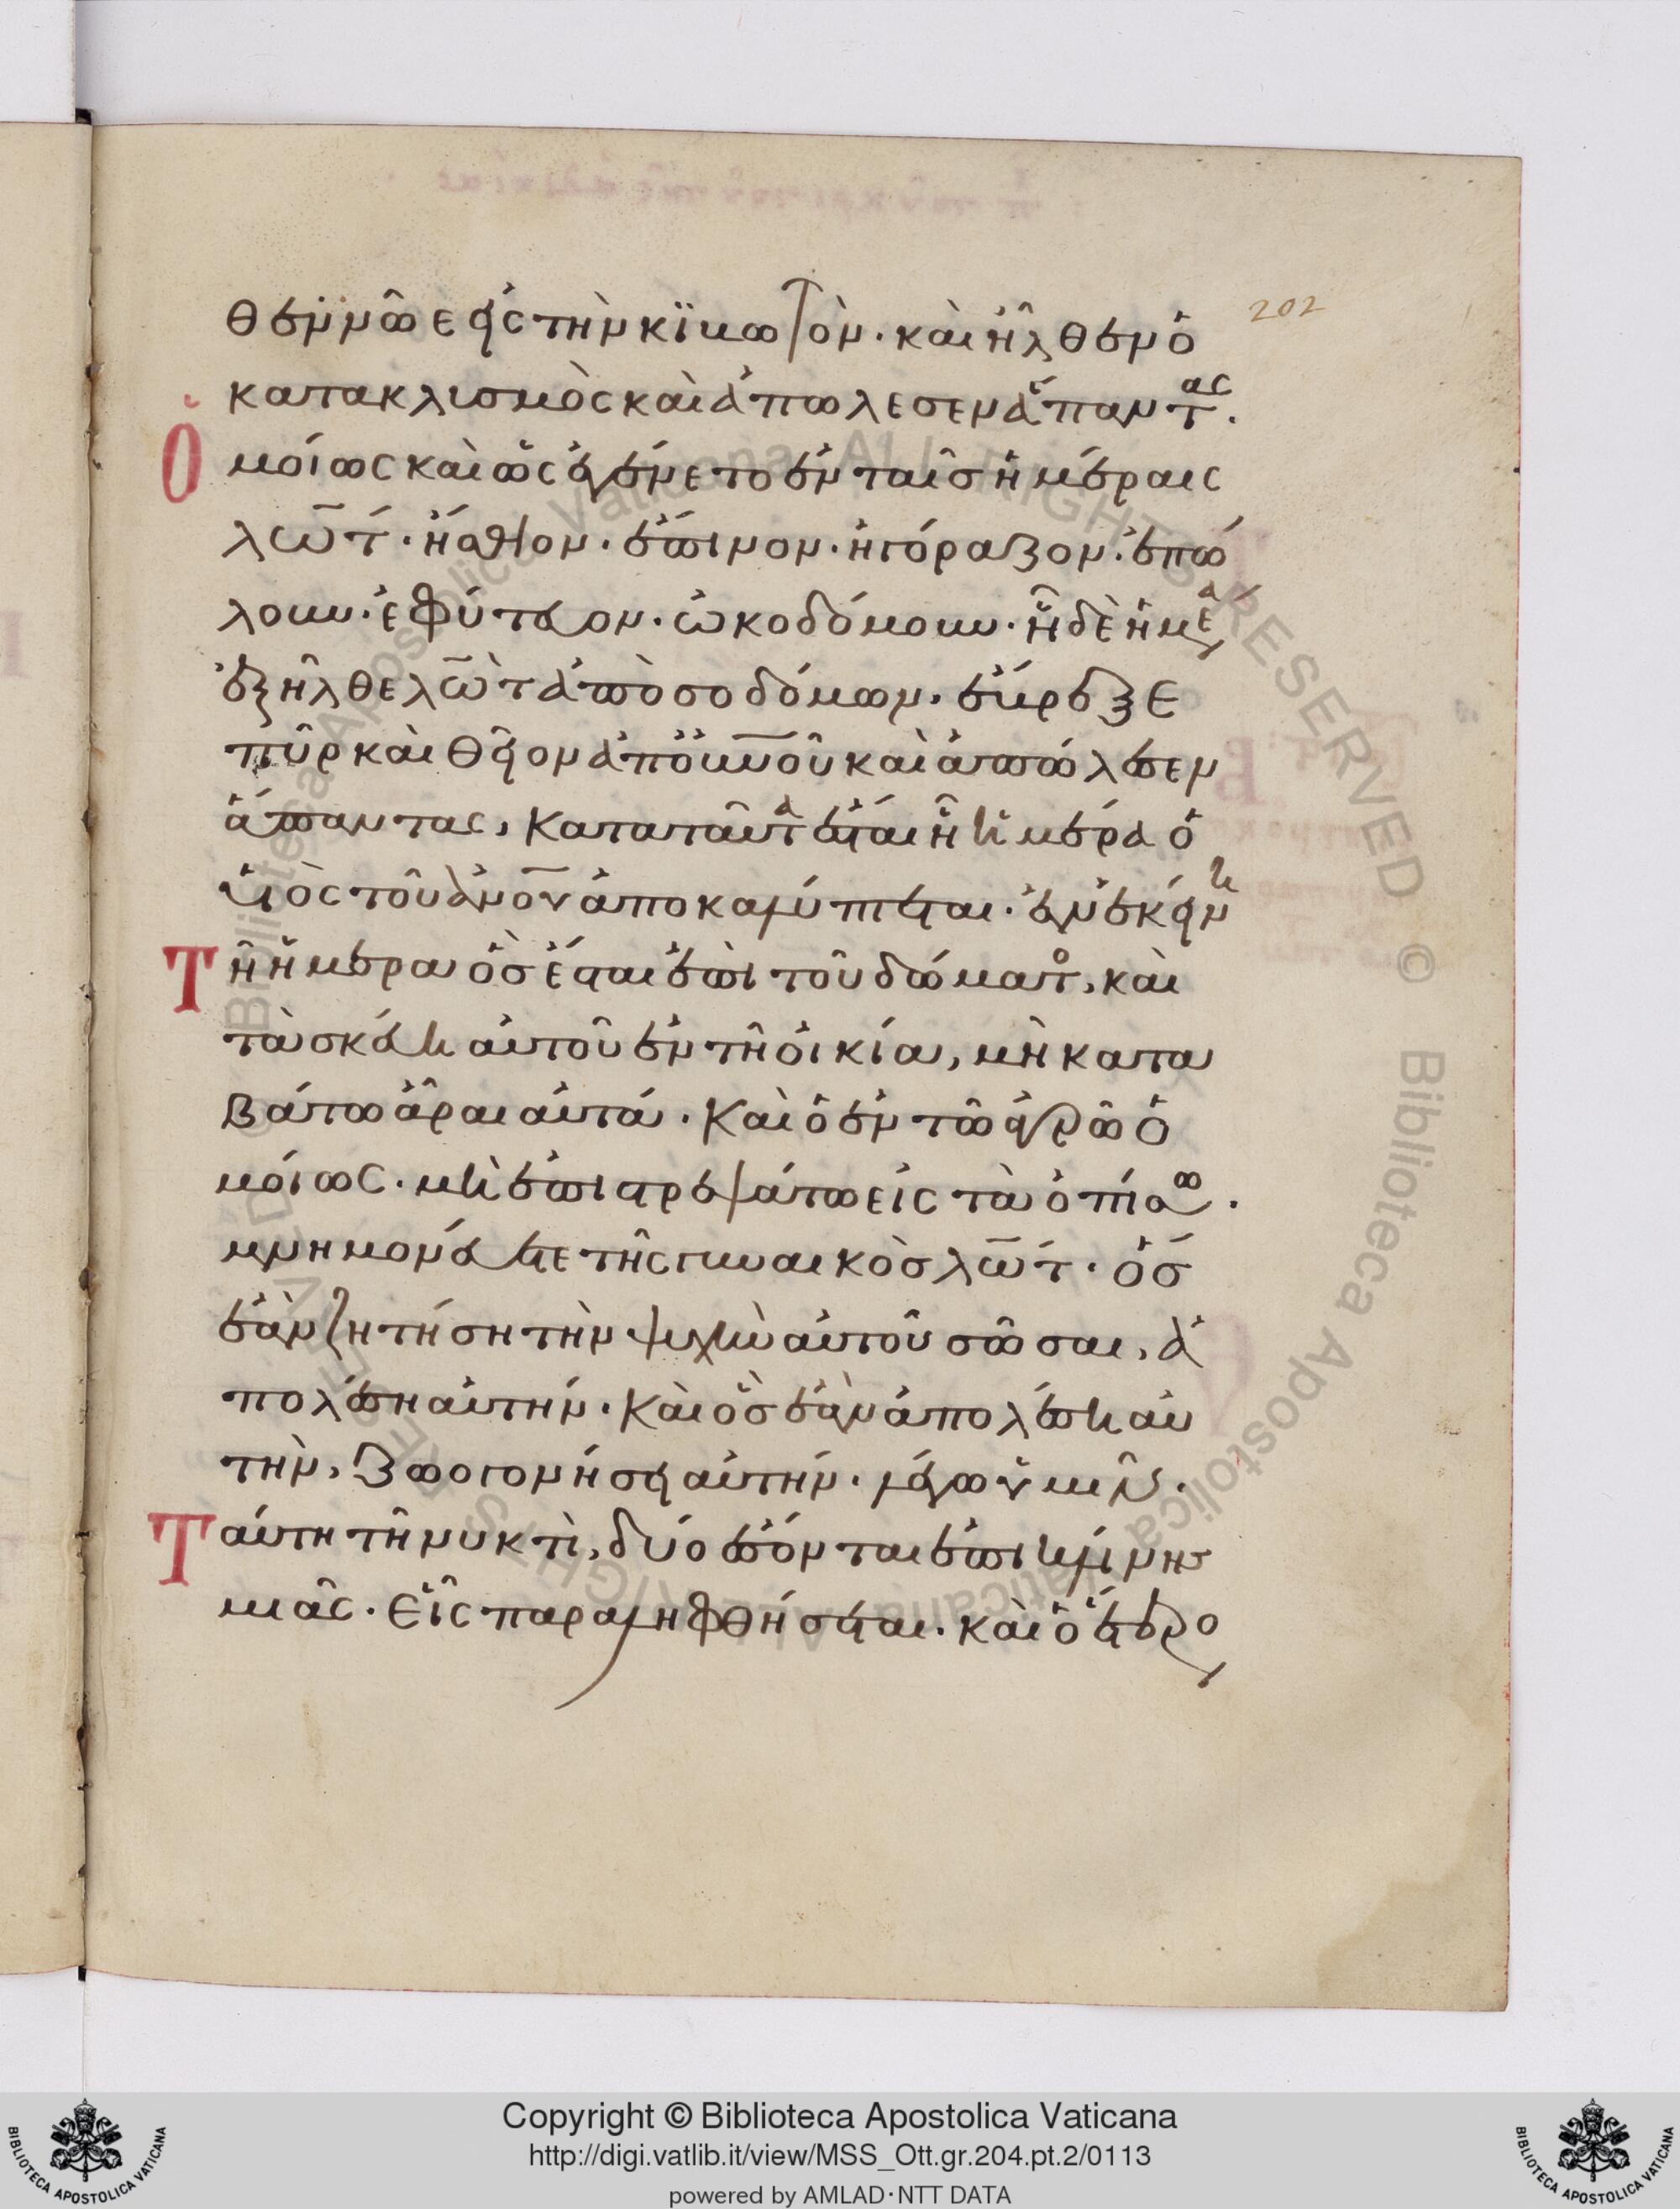 202
θεν νῶε εἰς τὴν κϊβωτὸν· καὶ ἦλθεν ὁ
κατακλισμὸς καὶ ἀπώλεσεν ἅπαντας.
Ὁμοίως καὶ ὡς ἐγένετο ἐν ταῖς ἡμέραις
λώτ· ἤσθιον· ἔπινον· ἠγόραζον· ἐπώ
λουν· ἐφύτευον· ὠκοδόμουν· ἧ δὲ ἡμέρα
ἐξῆλθε λὼτ ἀπὸ σοδόμων, ἔβρεξε
πῦρ καὶ θεῖον ἀπὸ οὐνοῦ καὶ ἀπώλεσεν
ἅπαντας, κατὰ ταῦτα ἔσται ἧ ἡμέρα ὁ
υἱὸς τοῦ ἀνου ἀποκαλύπτεται· ἐν ἐκείνη
Τῆ ἡμέρα ὃς ἔσται ἐπὶ τοῦ δώματος, καὶ
τὰ σκεύη αὐτοῦ ἐν τῆ οἰκία, μὴ κατα
βάτω ἆραι αὐτά· καὶ ὁ ἐν τῶ ἀγρῶ ὁ
μοίως· μὴ ἐπιστρεψάτω εἰς τὰ ὀπίσω.
μνημονεύετε τῆς γυναικὸς λώτ· ὃς
ἐὰν ζητήση τὴν ψυχὴν αὐτοῦ σῶσαι, ἀ
πολέσει αὐτήν· καὶ ὃς ἐὰν ἀπολέση αὐ
τὴν, ζωογονήσει αὐτήν· λέγω ὑμῖν·
Ταύτη τῆ νυκτὶ, δύο ἔσονται ἐπὶ κλίνης
μιᾶς· εἷς παραληφθήσεται· καὶ ὁ ἕτερο
Biblioteca Apostolica Vaticana ALL RIGHTS RESERVED © Biblioteca Apostolica Vaticana ALL RIGHTS RESERVED ©
Copyright © Biblioteca Apostolica Vaticana
http://digi.vatlib.it/view/MSS_Ott.gr.204.pt.2/0113
powered by AMLAD·NTT DATA
BIBLIOTECA APOSTOLICA VATICANA
BIBLIOTECA APOSTOLICA VATICANA